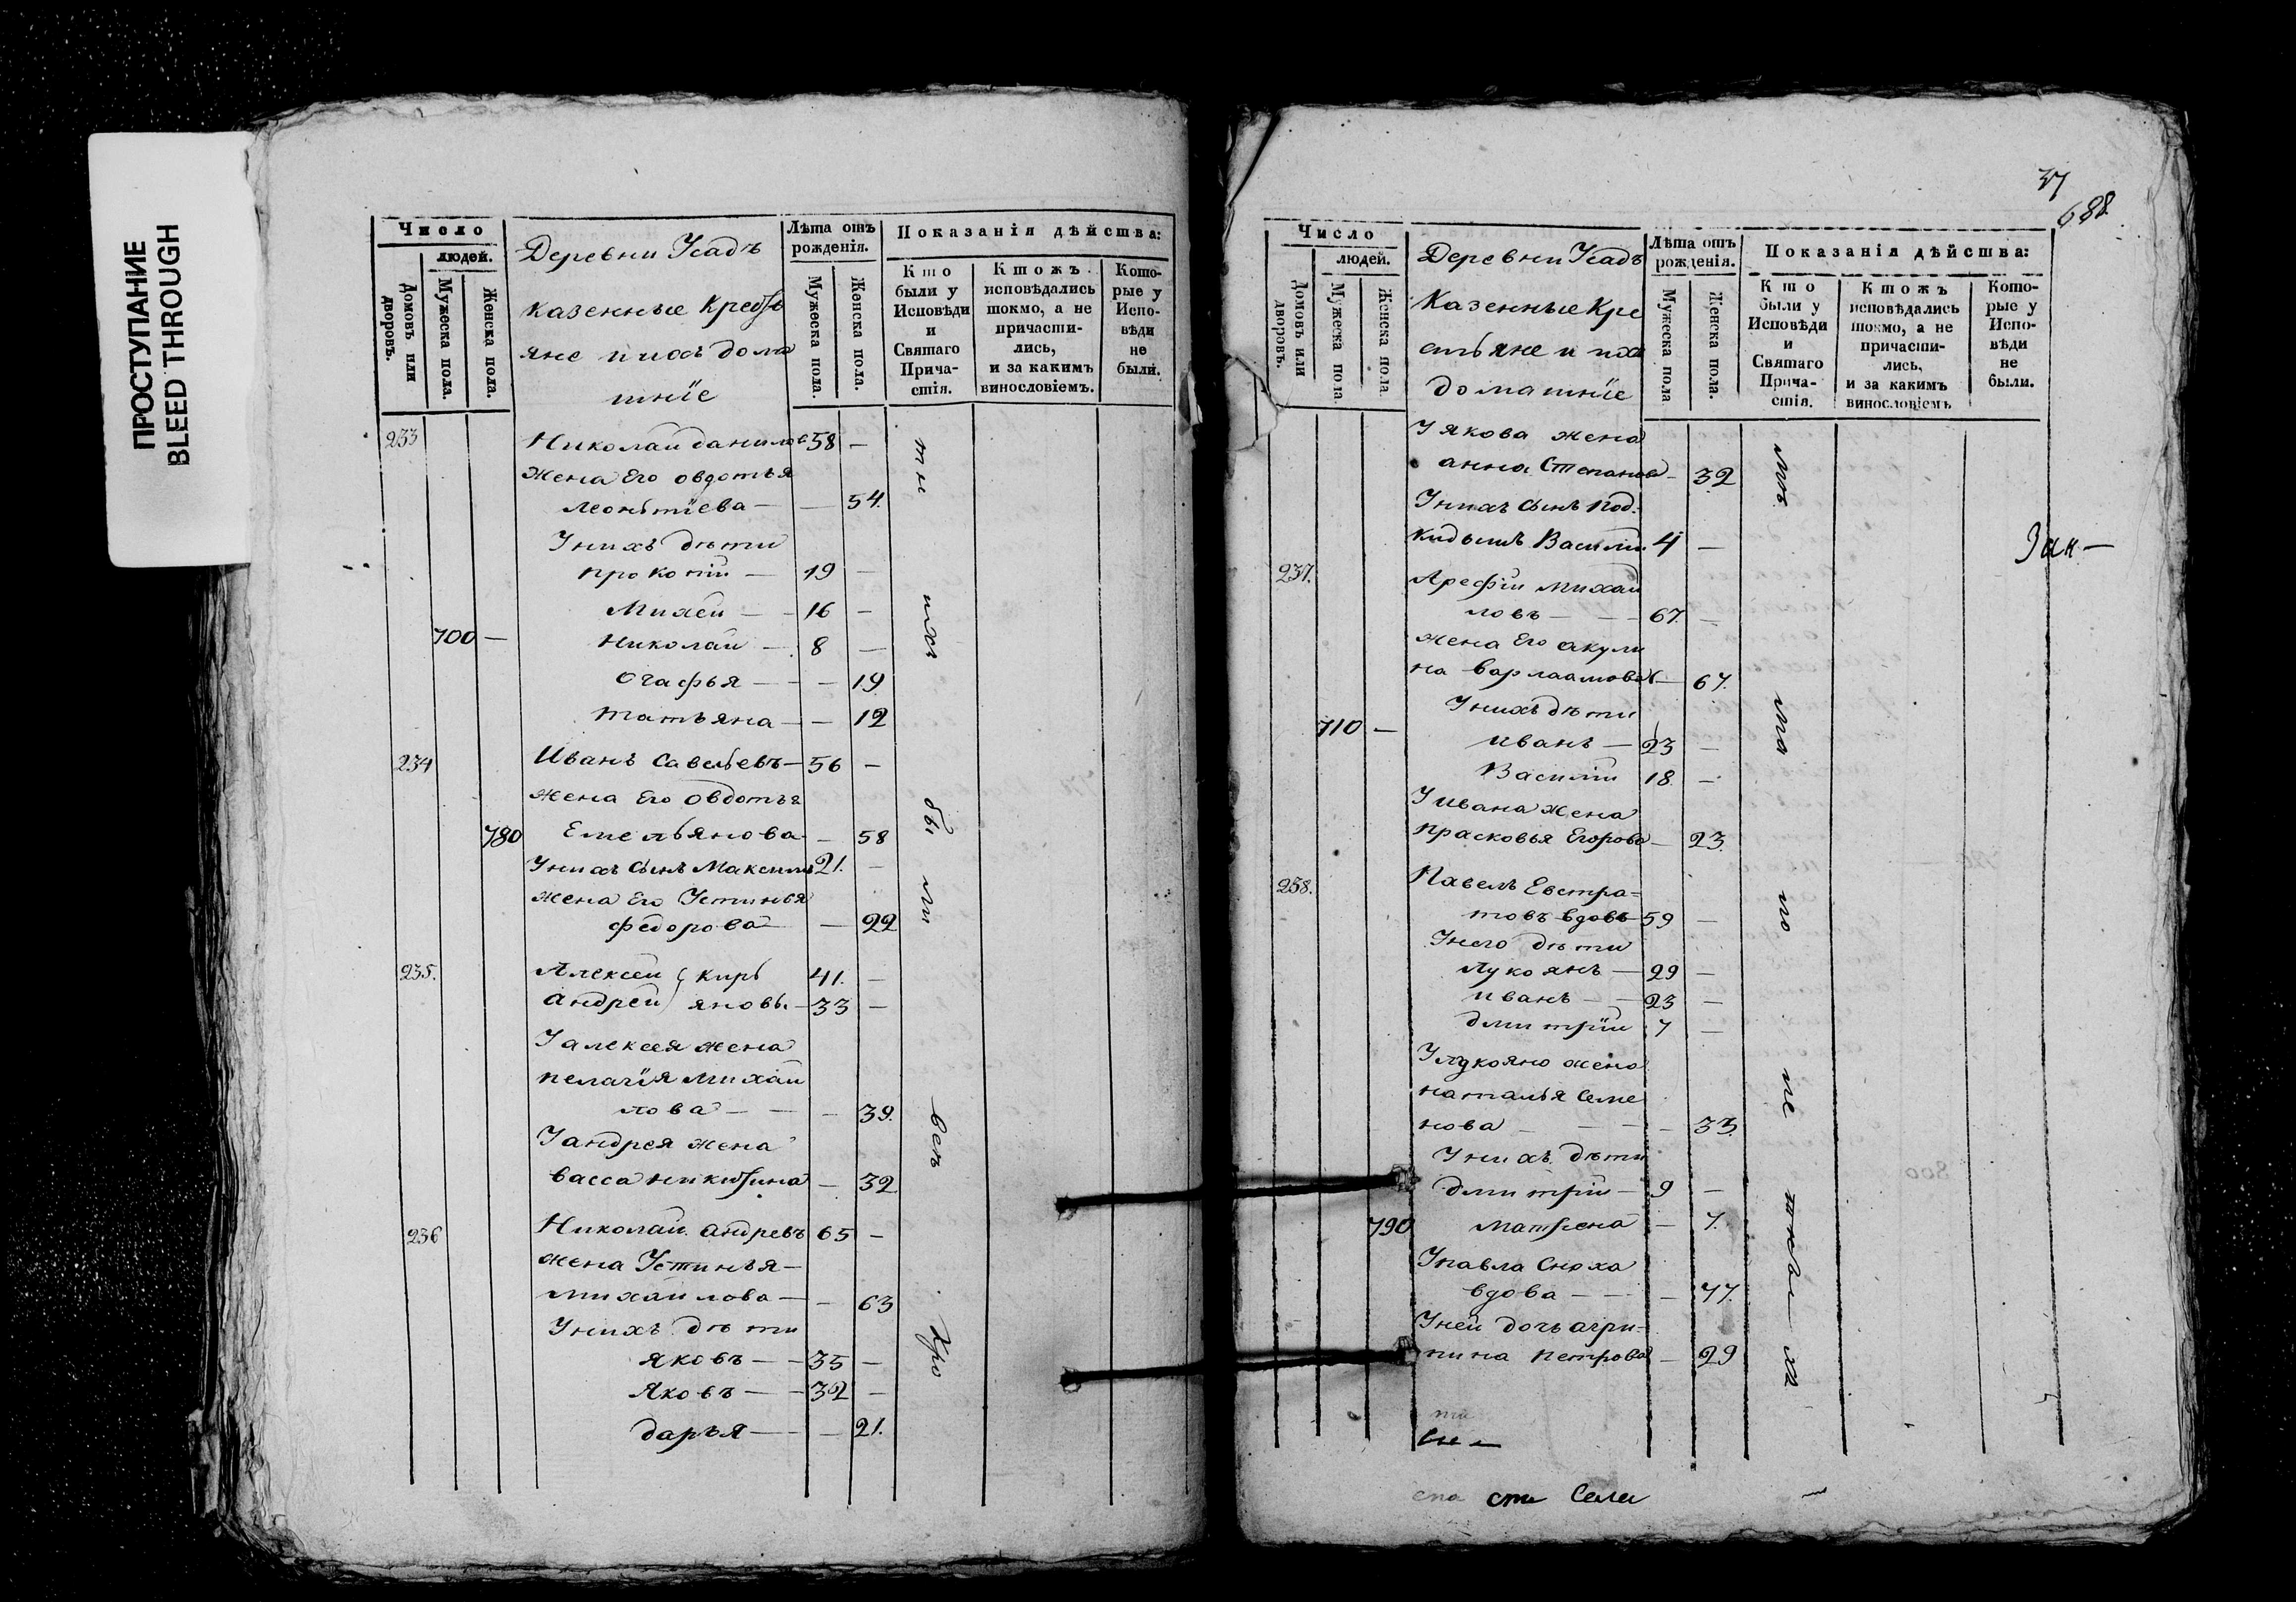 ПРОСТУПАНИЕ
BLEED THROUGH
Число
людей.
Домовъ или дворовъ.
Мужеска пола.
Женска пола.
Деревни Усадъ
казенные крестъ
яне и ихъ дома
шніе
Лѣта отъ
рожденія.
Мужеска пола.
Женска пола.
Показанія дѣйства:
Кто
были у
Исповѣди
и
Святаго
Прича-
стія.
Ктожъ
исповѣдались
токмо, а не
причасти-
лись,
и за какимъ
винословіемъ.
Кото-
рые у
Испо-
вѣди
не
были.
233 Николай данилов 58 —
Жена Его овдотья
леонтіева — — 54.
У нихъ дѣти
прокопій — 19 —
Михей — 16 —
700 — Николай — 8 —
огафья — — 19
татьяна — — 12
234 Иванъ Савельевъ — 56 —
жена Его Овдотья
780 Емельянова — 58
У нихъ сынъ Максимъ 21. —
жена Его Устинья
федорова — 22
235. Алексей ( кирь 41. —
андрей ) яновы — 33 —
У алексея жена
пелагія михай
лова — — — 39.
У андрея жена
васса никитина — 32
236 Николай андревъ 65 —
жена Устинья —
михайлова — — 63
У нихъ дѣти
яковъ — — 35 —
Яковъ — — 32 —
дарья — — 21.
37
688.
Число
людей.
Домовъ или дворовъ.
Мужеска пола
Женска пола
Деревни Усадъ
Казенные кре
стьяне и ихъ
домашніе
Лѣта отъ
рожденія.
Мужеска пола
Женска пола.
Показанія дѣйства:
Кто
были у
Исповѣди
и
Святаго
Прича-
стія.
Ктожъ
исповѣдались
токмо, а не
причасти-
лись,
и за какимъ
винословіемъ
Кото-
рые у
Испо-
вѣди
не
были.
У якова жена
анна Степанова — 32
У нихъ сынъ под-
кидышъ Василій 4 —
237. Арефій михай
ловъ — — — 67. —
жена Его акули
на варлаамова — 67.
У нихъ дѣти
710 — иванъ — 23 —
Василій 18 —
У ивана жена
прасковья Егорова — 23.
238. Павелъ Евстра-
товъ вдовъ 59 —
У него дѣти
лукоянъ — 29 —
иванъ — — 23 —
дмитрій 7 —
У лукояна жена
наталья семе
нова — — — — 33.
У нихъ дѣти
дмитрій — 9 —
790 матрена — 7.
У павла сноха
вдова — — — 47.
У ней дочь агри-
пина петрова — 29
сти Села